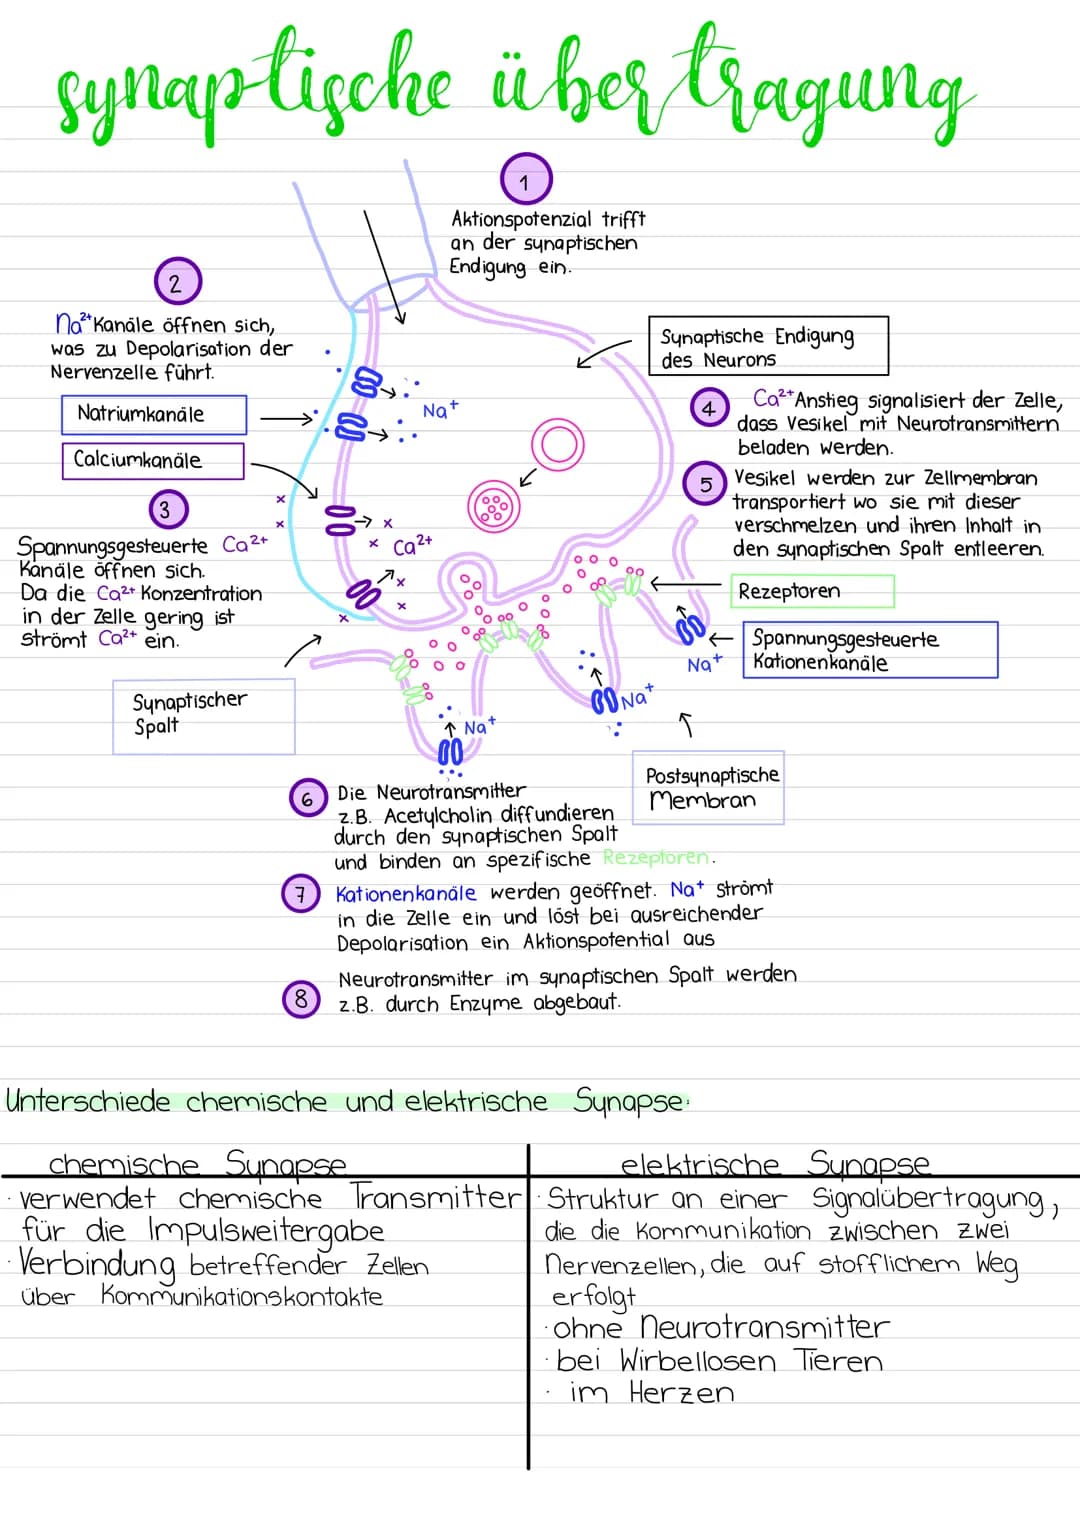 synaptische übertragung
1
Aktionspotenzial trifft
an der synaptischen
Endigung ein.
2
Na²⁺ Kanäle öffnen sich,
was zu Depolarisation der
Nervenzelle führt.
Natriumkanäle
Calciumkanäle
3
Spannungsgesteuerte Ca²⁺
Kanäle öffnen sich.
Da die Ca²⁺ Konzentration
in der Zelle gering ist
strömt Ca²⁺ ein.
Na⁺
Ca²⁺
Synaptische Endigung
des Neurons
4
Ca²⁺ Anstieg signalisiert der Zelle,
dass Vesikel mit Neurotransmittern
beladen werden.
5
Vesikel werden zur Zellmembran
transportiert wo sie mit dieser
verschmelzen und ihren Inhalt in
den synaptischen Spalt entleeren.
Rezeptoren
Spannungsgesteuerte
Kationenkanäle
Na⁺
Na⁺
Na⁺
Synaptischer
Spalt
Postsynaptische
Membran
6
Die Neurotransmitter
z.B. Acetylcholin diffundieren
durch den synaptischen Spalt
und binden an spezifische Rezeptoren.
7
Kationenkanäle werden geöffnet. Na⁺ strömt
in die Zelle ein und löst bei ausreichender
Depolarisation ein Aktionspotential aus
8
Neurotransmitter im synaptischen Spalt werden
z.B. durch Enzyme abgebaut.
Unterschiede chemische und elektrische Synapse:
chemische Synapse
· verwendet chemische Transmitter
für die Impulsweitergabe
· Verbindung betreffender Zellen
über Kommunikationskontakte
elektrische Synapse
· Struktur an einer Signalübertragung,
die die Kommunikation zwischen zwei
Nervenzellen, die auf stofflichem Weg
erfolgt
· ohne Neurotransmitter
· bei Wirbellosen Tieren
· im Herzen